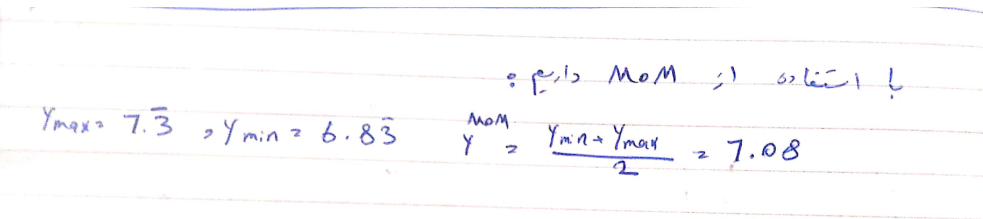 با استفاده از MoM داریم :
Ymax = 7.3̄ , Ymin = 6.83̄    Y^MoM = (Ymin + Ymax) / 2 = 7.08